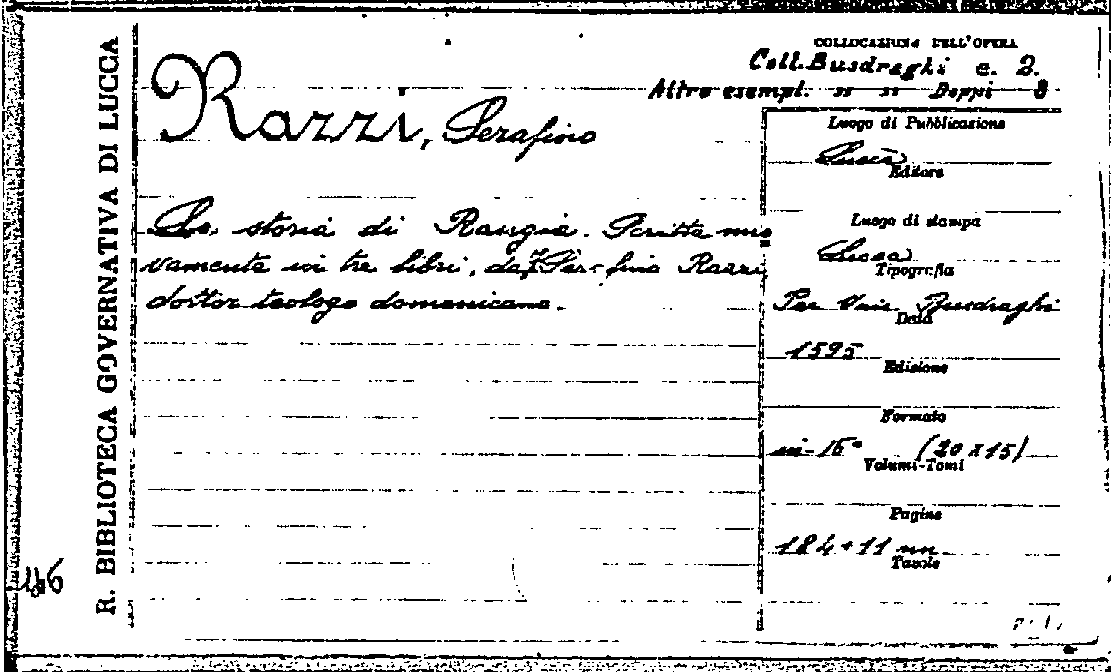 R. BIBLIOTECA GOVERNATIVA DI LUCCA
COLLOCAZIONE DELL'OPERA
Coll. Busdraghi c. 2.
Altro esempl. " " Doppi 8
Razzi, Serafino
La storia di Raugia. Scritta nuo
vamente in tre libri, da Serafino Razzi,
dottor teologo domenicano.
Luogo di Pubblicazione
Lucca
Editore
Luogo di stampa
Lucca
Tipografia
Per Vinc. Busdraghi
Data
1595
Edizione
Formato
in-16° (20x15)
Volumi-Tomi
Pagine
184+11 nn.
Tavole